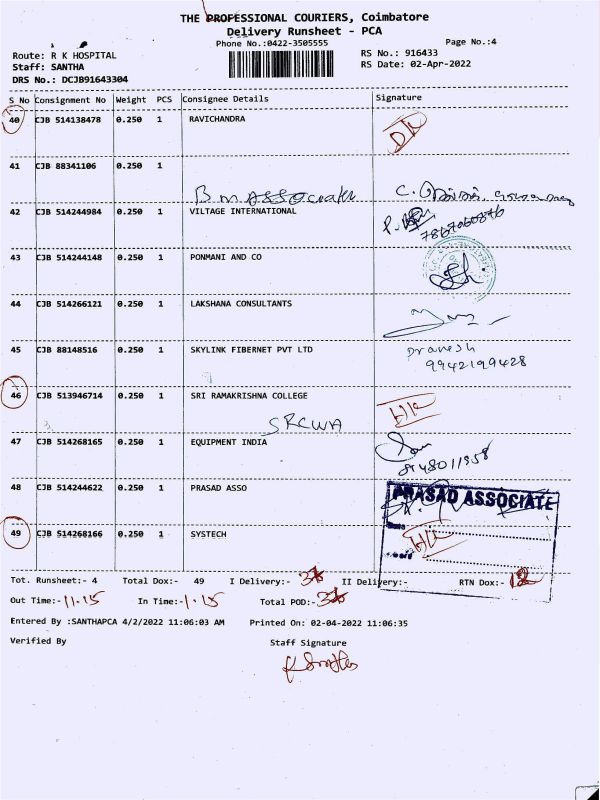 THE PROFESSIONAL COURIERS, Coimbatore
Delivery Runsheet - PCA
Phone No.:0422-3505555
Page No.:4
Route: R K HOSPITAL
RS No.: 916433
Staff: SANTHA
RS Date: 02-Apr-2022
DRS No.: DCJB91643304
S No Consignment No Weight PCS Consignee Details Signature
40 CJB 514138478 0.250 1 RAVICHANDRA
41 CJB 88341106 0.250 1
B M Associates
42 CJB 514244984 0.250 1 VILTAGE INTERNATIONAL
43 CJB 514244148 0.250 1 PONMANI AND CO
44 CJB 514266121 0.250 1 LAKSHANA CONSULTANTS
45 CJB 88148516 0.250 1 SKYLINK FIBERNET PVT LTD
Pranesh
9942199428
46 CJB 513946714 0.250 1 SRI RAMAKRISHNA COLLEGE
SRCWA
47 CJB 514268165 0.250 1 EQUIPMENT INDIA
48 CJB 514244622 0.250 1 PRASAD ASSO
PRASAD ASSOCIATE
49 CJB 514268166 0.250 1 SYSTECH
Tot. Runsheet:- 4 Total Dox:- 49 I Delivery:- II Delivery:- RTN Dox:-
Out Time:-11.15 In Time:-1.15 Total POD:-
Entered By :SANTHAPCA 4/2/2022 11:06:03 AM Printed On: 02-04-2022 11:06:35
Verified By Staff Signature